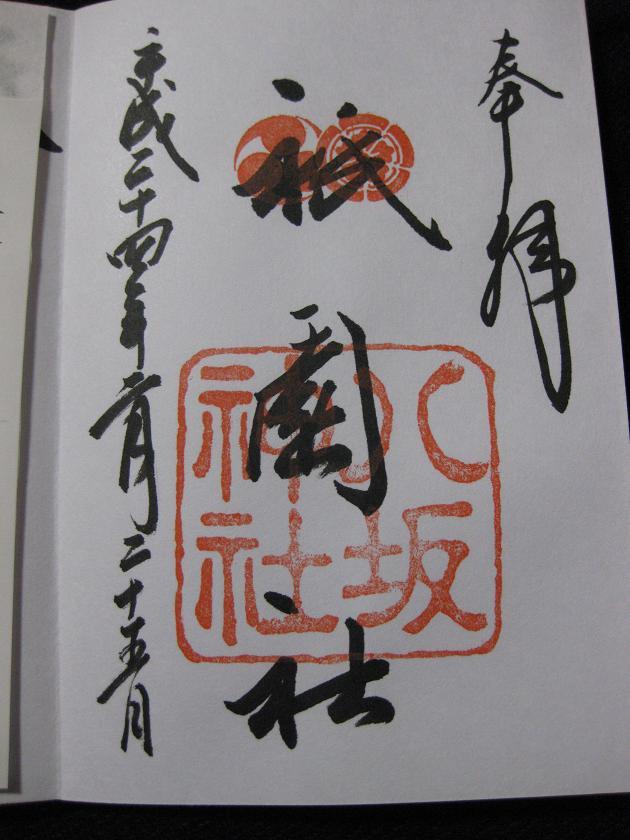 奉拝
祇園社
八坂
神社
平成二十四年二月二十五日